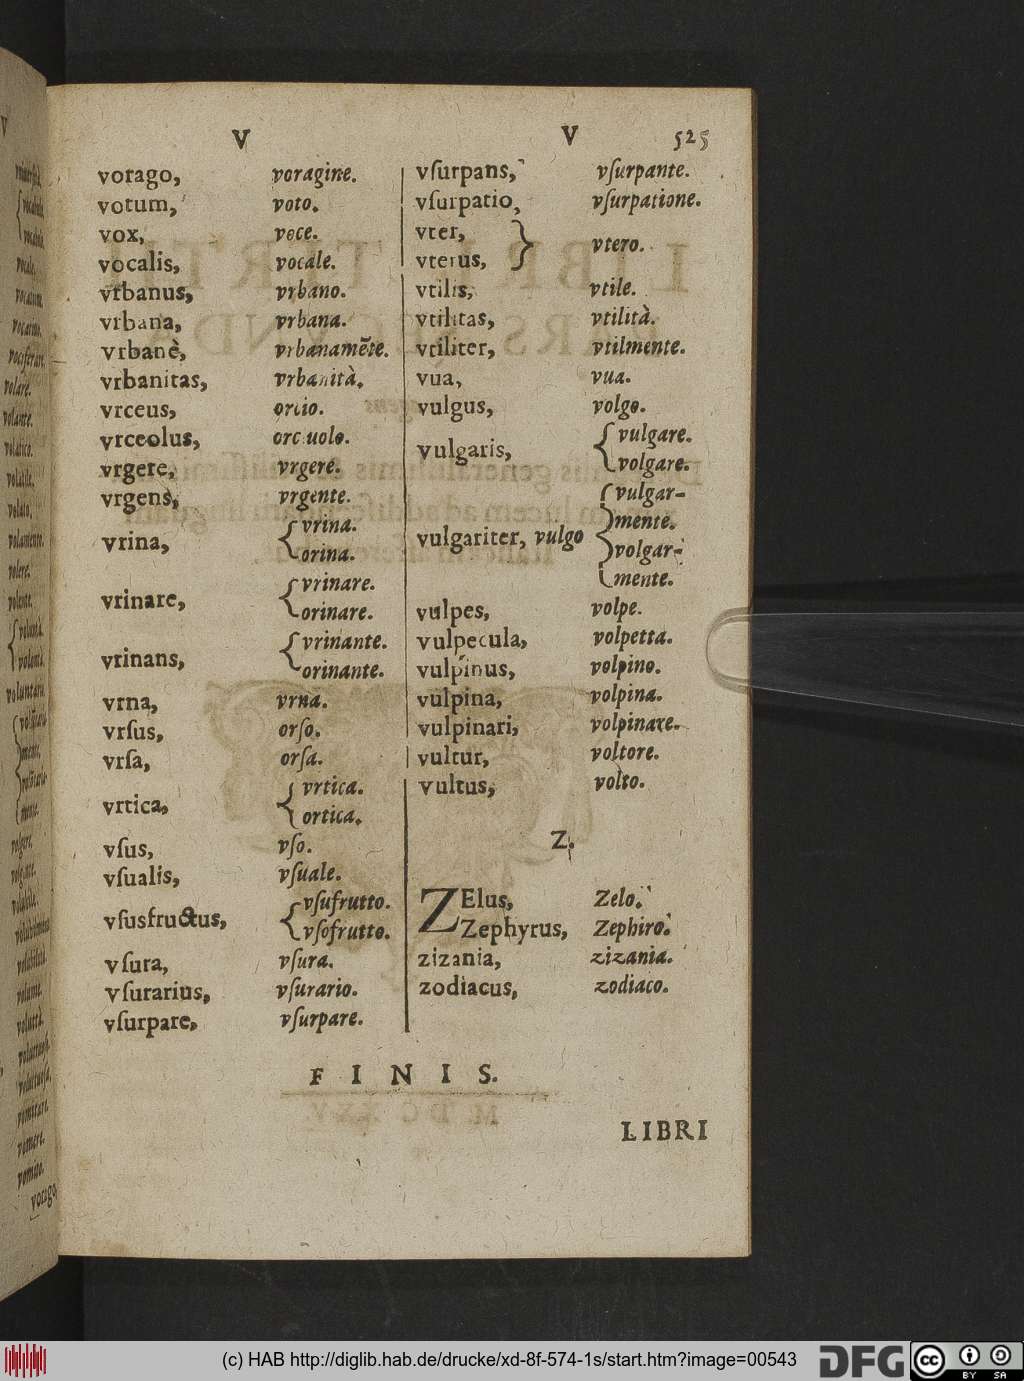 V V 525
vorago, voragine.
votum, voto.
vox, voce.
vocalis, vocale.
vrbanus, vrbano.
vrbana, vrbana.
vrbanè, vrbanamẽte.
vrbanitas, vrbanità.
vrceus, orcio.
vrceolus, orciuolo.
vrgere, vrgere.
vrgens, vrgente.
vrina, { vrina.
orina.
vrinare, { vrinare.
orinare.
vrinans, { vrinante.
orinante.
vrna, vrna.
vrſus, orſo.
vrſa, orſa.
vrtica, { vrtica.
ortica.
vſus, vſo.
vſualis, vſuale.
vſusfructus, { vſufrutto.
vſofrutto.
vſura, vſura.
vſurarius, vſurario.
vſurpare, vſurpare.
vſurpans, vſurpante.
vſurpatio, vſurpatione.
vter,
vterus, } vtero.
vtilis, vtile.
vtilitas, vtilità.
vtiliter, vtilmente.
vua, vua.
vulgus, volgo.
vulgaris, { vulgare.
volgare.
vulgariter, vulgo { vulgar-
mente.
volgar-
mente.
vulpes, volpe.
vulpecula, volpetta.
vulpinus, volpino.
vulpina, volpina.
vulpinari, volpinare.
vultur, voltore.
vultus, volto.
Z.
ZElus, Zelo.
Zephyrus, Zephiro.
zizania, zizania.
zodiacus, zodiaco.
FINIS.
LIBRI
(c) HAB http://diglib.hab.de/drucke/xd-8f-574-1s/start.htm?image=00543
DFG
cc BY SA